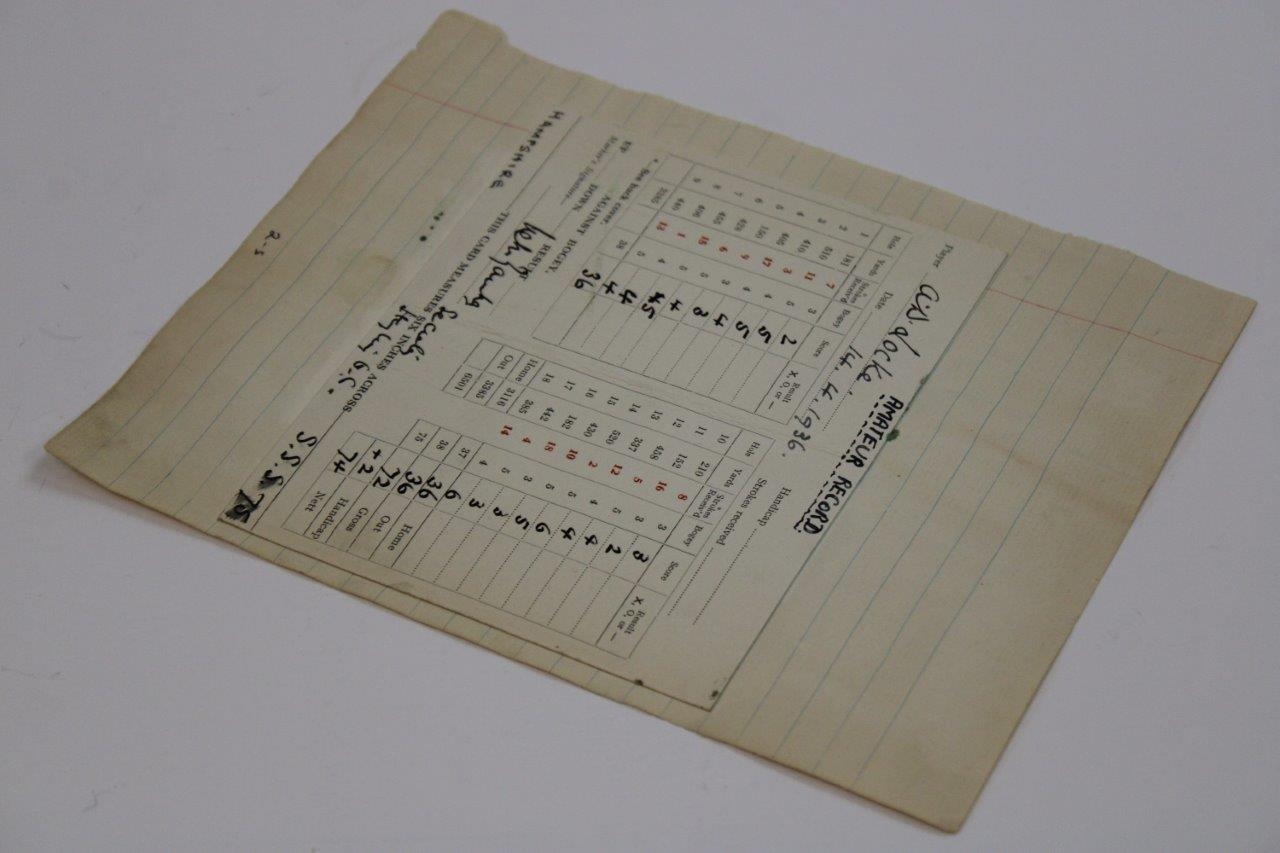 AMATEUR RECORD
Player A.D. Locke Handicap
Date 14.4.1936. Strokes received
Hole Yards Strokes Receiv'd Bogey Score Result X, O, or —
1 181 7 3 2
2 510 11 5 5
3 410 3 4 5
4 405 17 4 4
5 150 9 3 3
6 428 6 5 4
7 455 15 5 45
8 406 1 4 4
9 440 13 5 4
3385 38 36
* See back cover.
Hole Yards * Strokes Receiv'd Bogey Score Result X, O, or —
10 210 8 3 3
11 152 16 3 2
12 458 5 5 4
13 337 12 4 4
14 520 2 5 6
15 430 10 5 5
16 182 18 3 3
17 442 4 5 3
18 385 14 4 6
Home 3116 37 36 Home
Out 3385 38 36 Out
6501 75 72 Gross
+2 Handicap
74 Nett
AGAINST BOGEY.
UP DOWN RESULT
Marker's Signature
THIS CARD MEASURES SIX INCHES ACROSS
HAMPSHIRE
G.C.
S.S.S 75
2-5